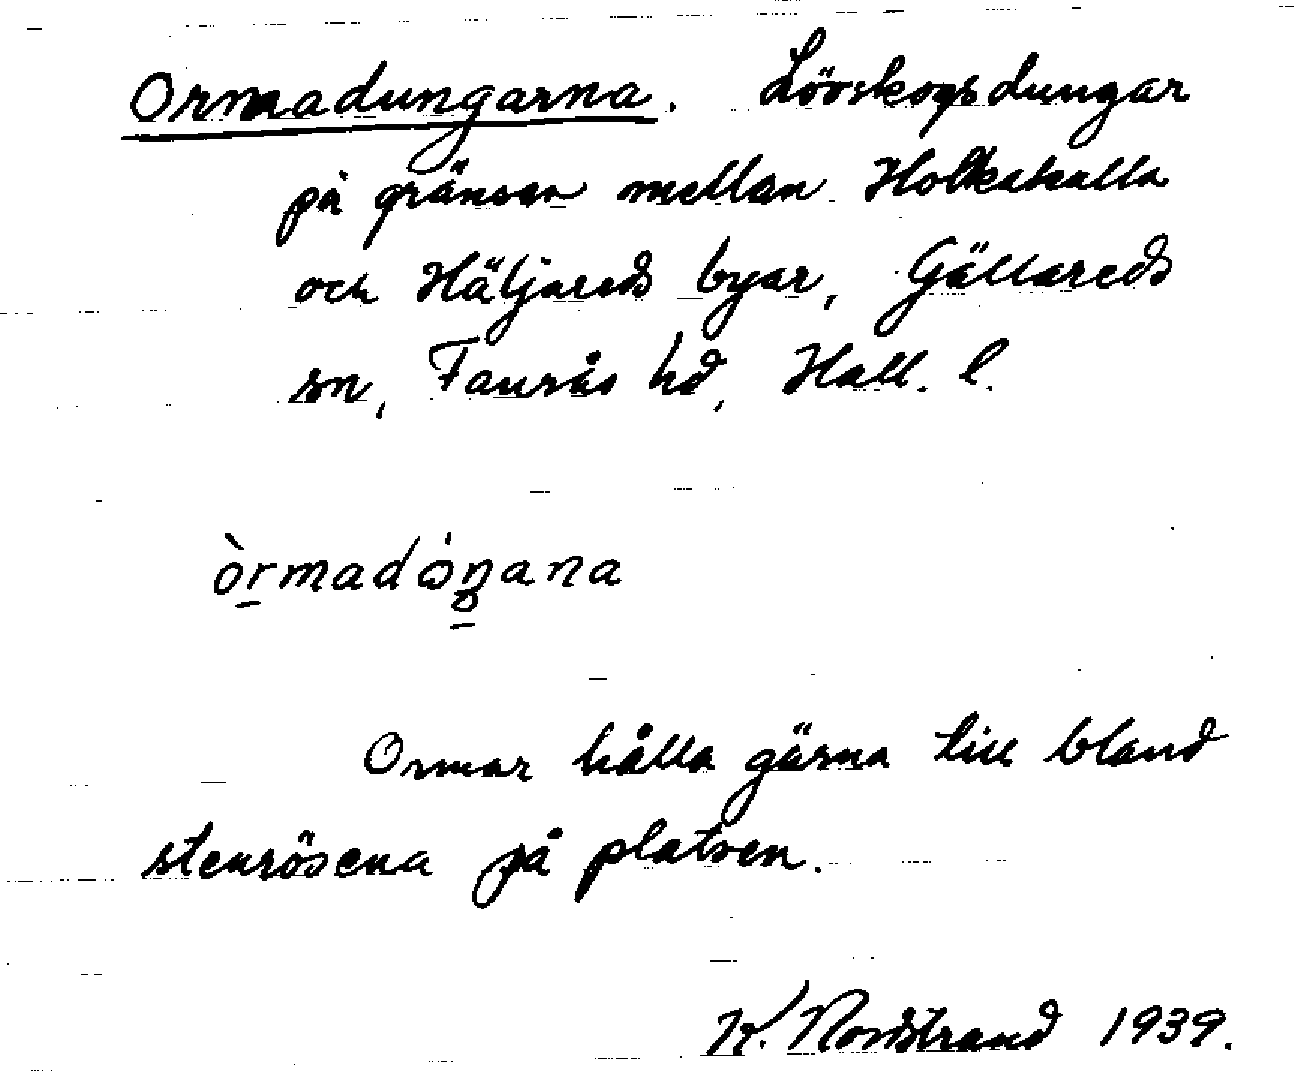 Ormadungarna. Lövskogsdungar
på gränsen mellan Holkakulla
och Häljareds byar, Gällareds
sn, Faurås hd, Hall. l.
òrmadóŋana
Ormar hålla gärna till bland
stenrösena på platsen.
K. Nordstrand 1939.